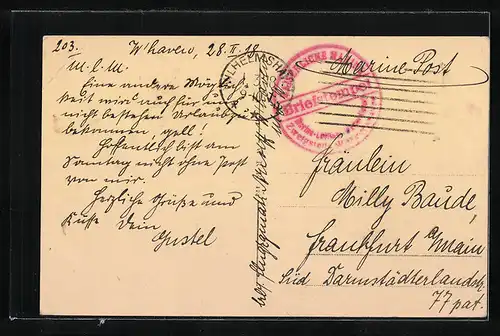 203.
W'haven, 28.II.18
M. l. M.
Eine andere Möglich
keit wird auch für uns
nicht bestehen Urlaub zu
bekommen, gell!
Hoffentlich bist am
Sonntag nicht ohne Post
von mir.
Herzliche Grüße und
Küsse Dein
Gustel
WILHELMSHAVEN
Briefstempel
Marine-Post
Fräulein
Milly Baude,
Frankfurt a/Main
Süd Darmstädterlandstr
77 pat.